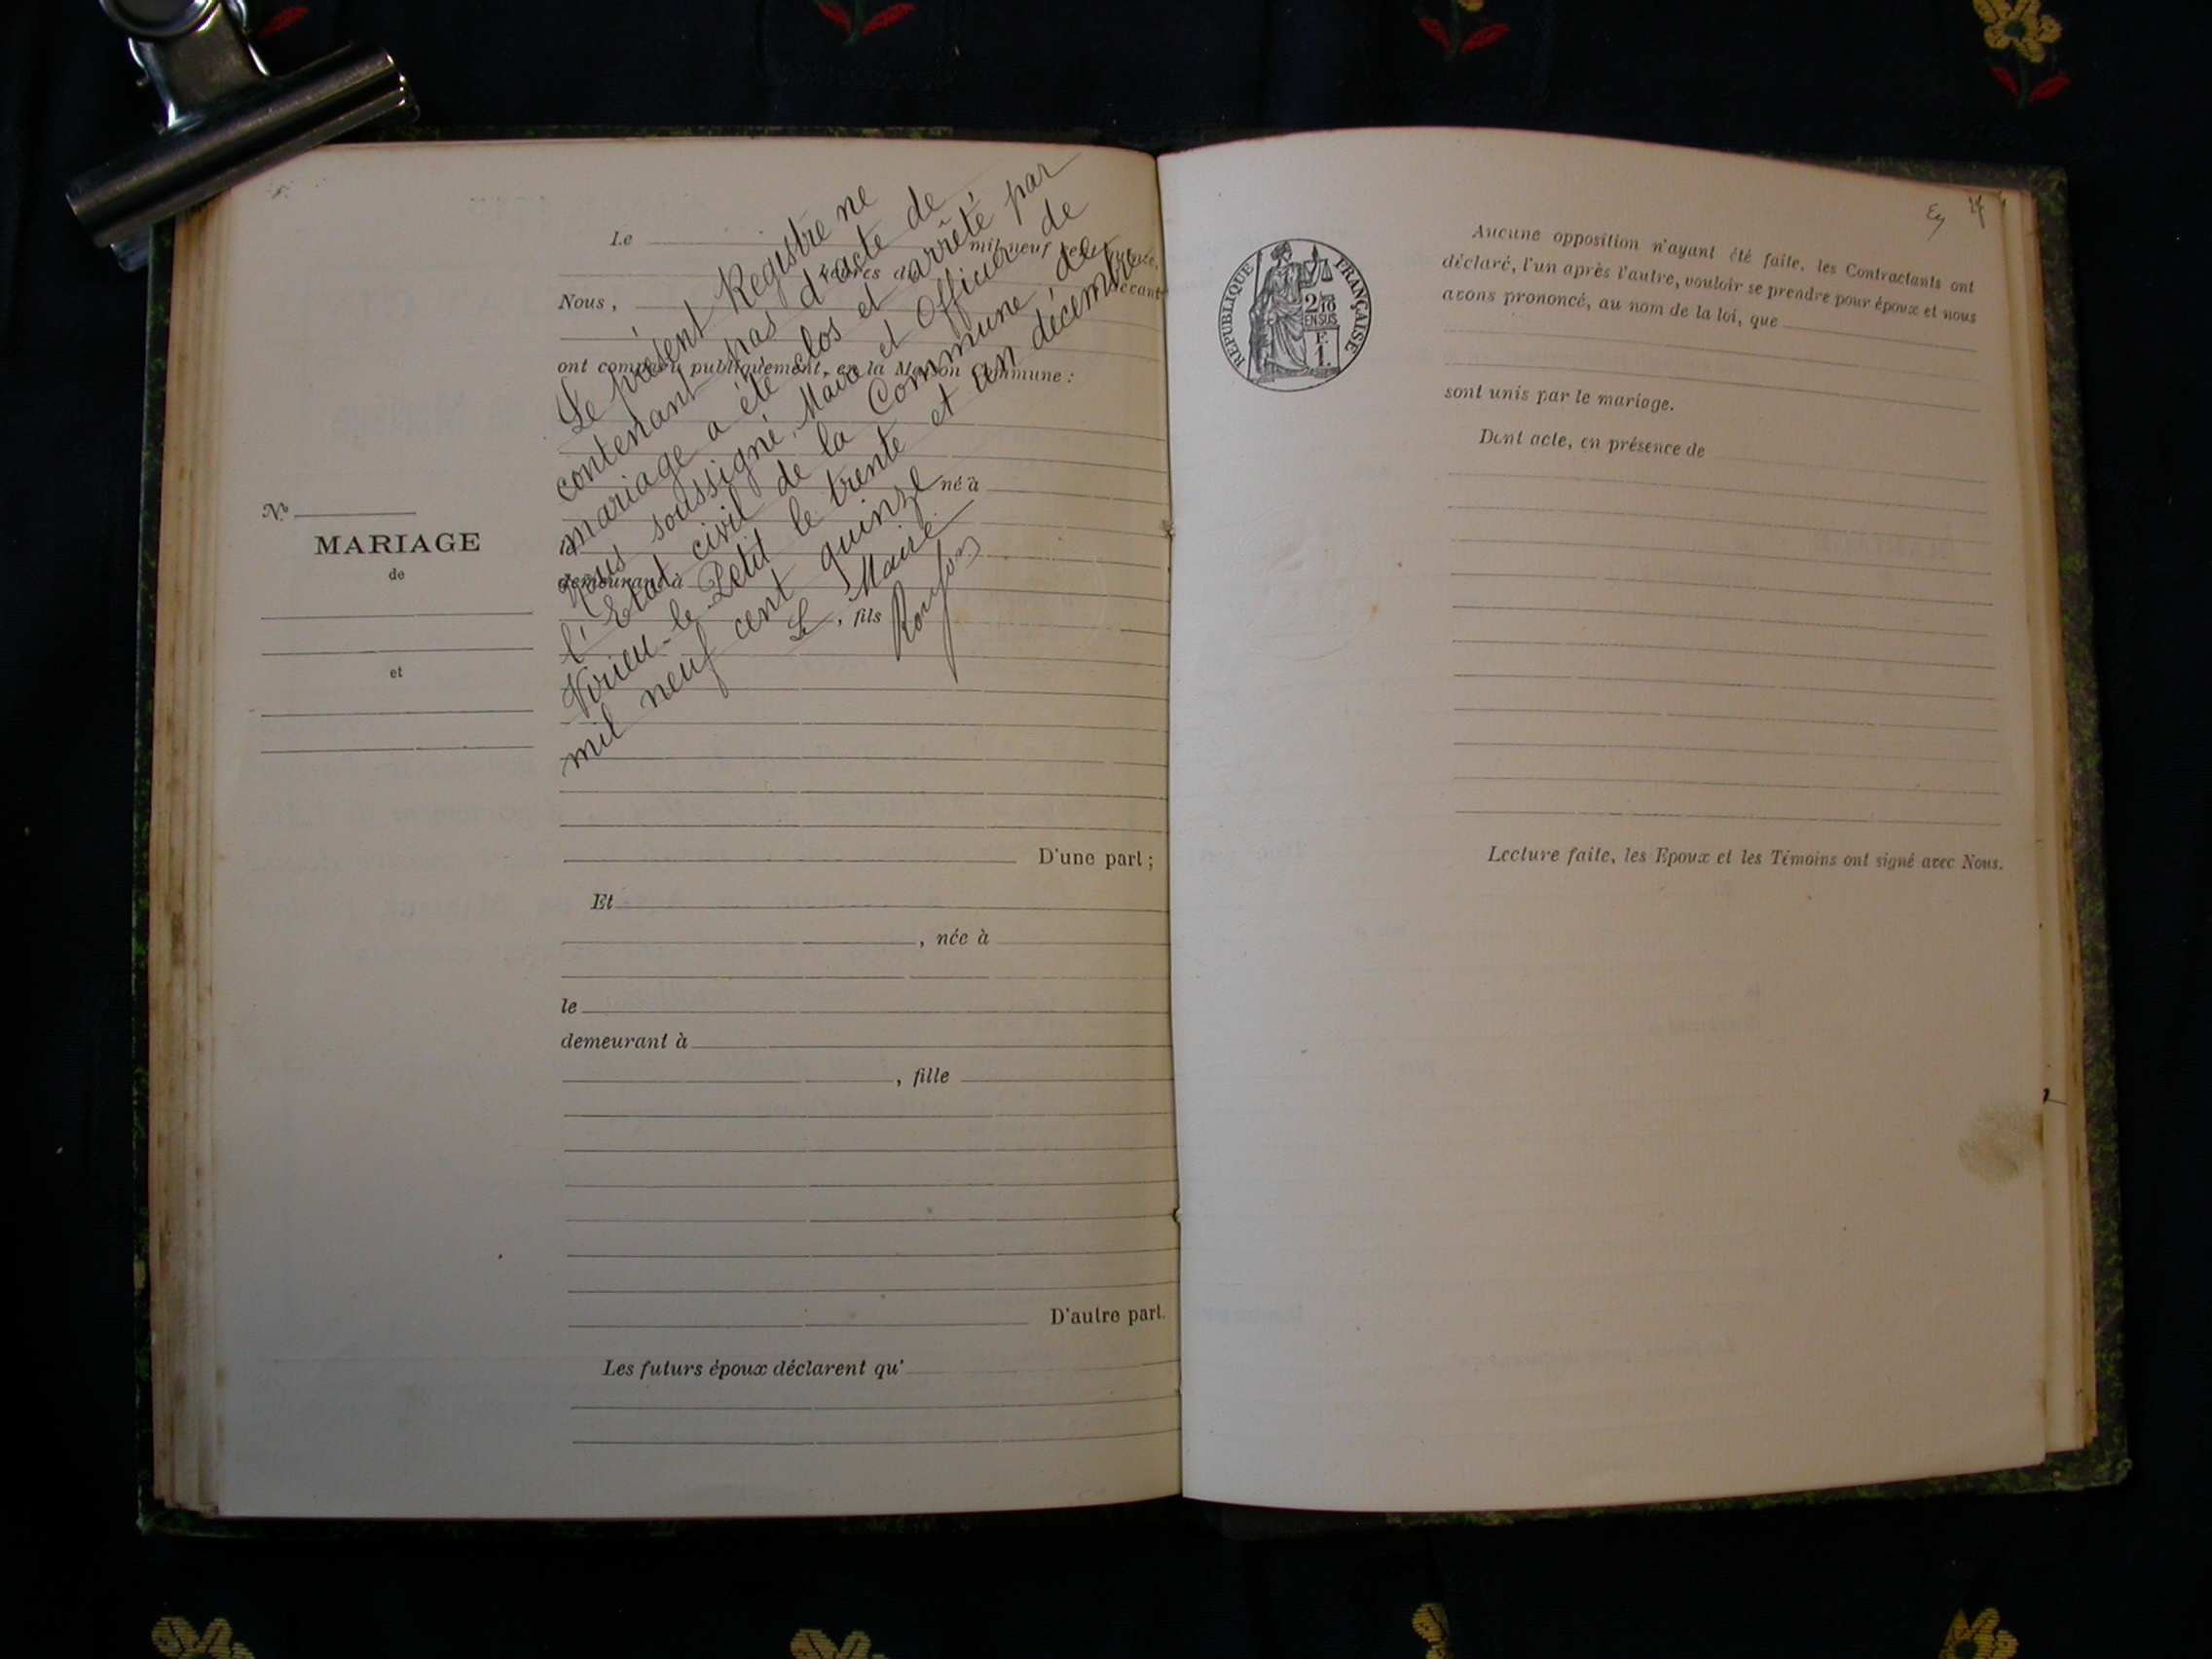 Le présent Registre ne
contenant pas d'acte de
mariage a été clos et arrêté par
nous soussigné, Maire et Officier de
l'Etat civil de la Commune de
Virieu-le-Petit le trente et un décembre
mil neuf cent quinze
Le Maire
Le
mil neuf cent
heures d
Nous,
ont comparu publiquement, en la Maison Commune :
né à
demeurant à
, fils
D'une part ;
Et
, née à
le
demeurant à
, fille
D'autre part.
Les futurs époux déclarent qu'
No
MARIAGE
de
et
REPUBLIQUE FRANÇAISE
2/10
EN SUS
F.
1.
Aucune opposition n'ayant été faite, les Contractants ont
déclaré, l'un après l'autre, vouloir se prendre pour époux et nous
avons prononcé, au nom de la loi, que
sont unis par le mariage.
Dont acte, en présence de
Lecture faite, les Epoux et les Témoins ont signé avec Nous.